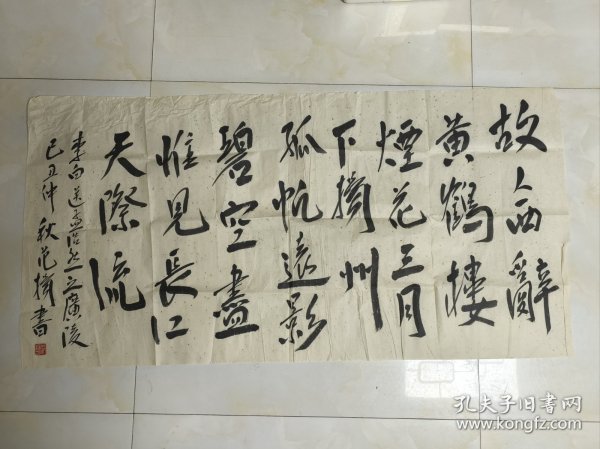 故人西辭
黄鶴樓
煙花三月
下揚州
孤帆遠影
碧空盡
惟見長江
天際流
李白送孟浩然之廣陵
己丑仲秋范揚書
孔夫子旧书网
www.kongfz.com